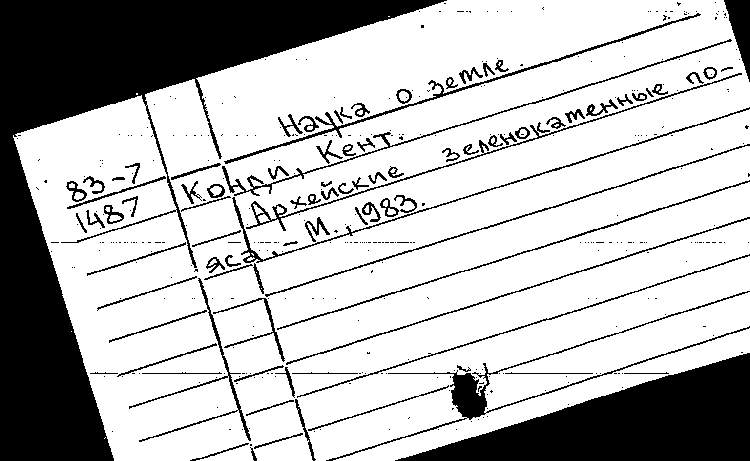 Наука о земле.
83-7
1487
Конди, Кент.
Архейские зеленокаменные по-
яса. - М., 1983.